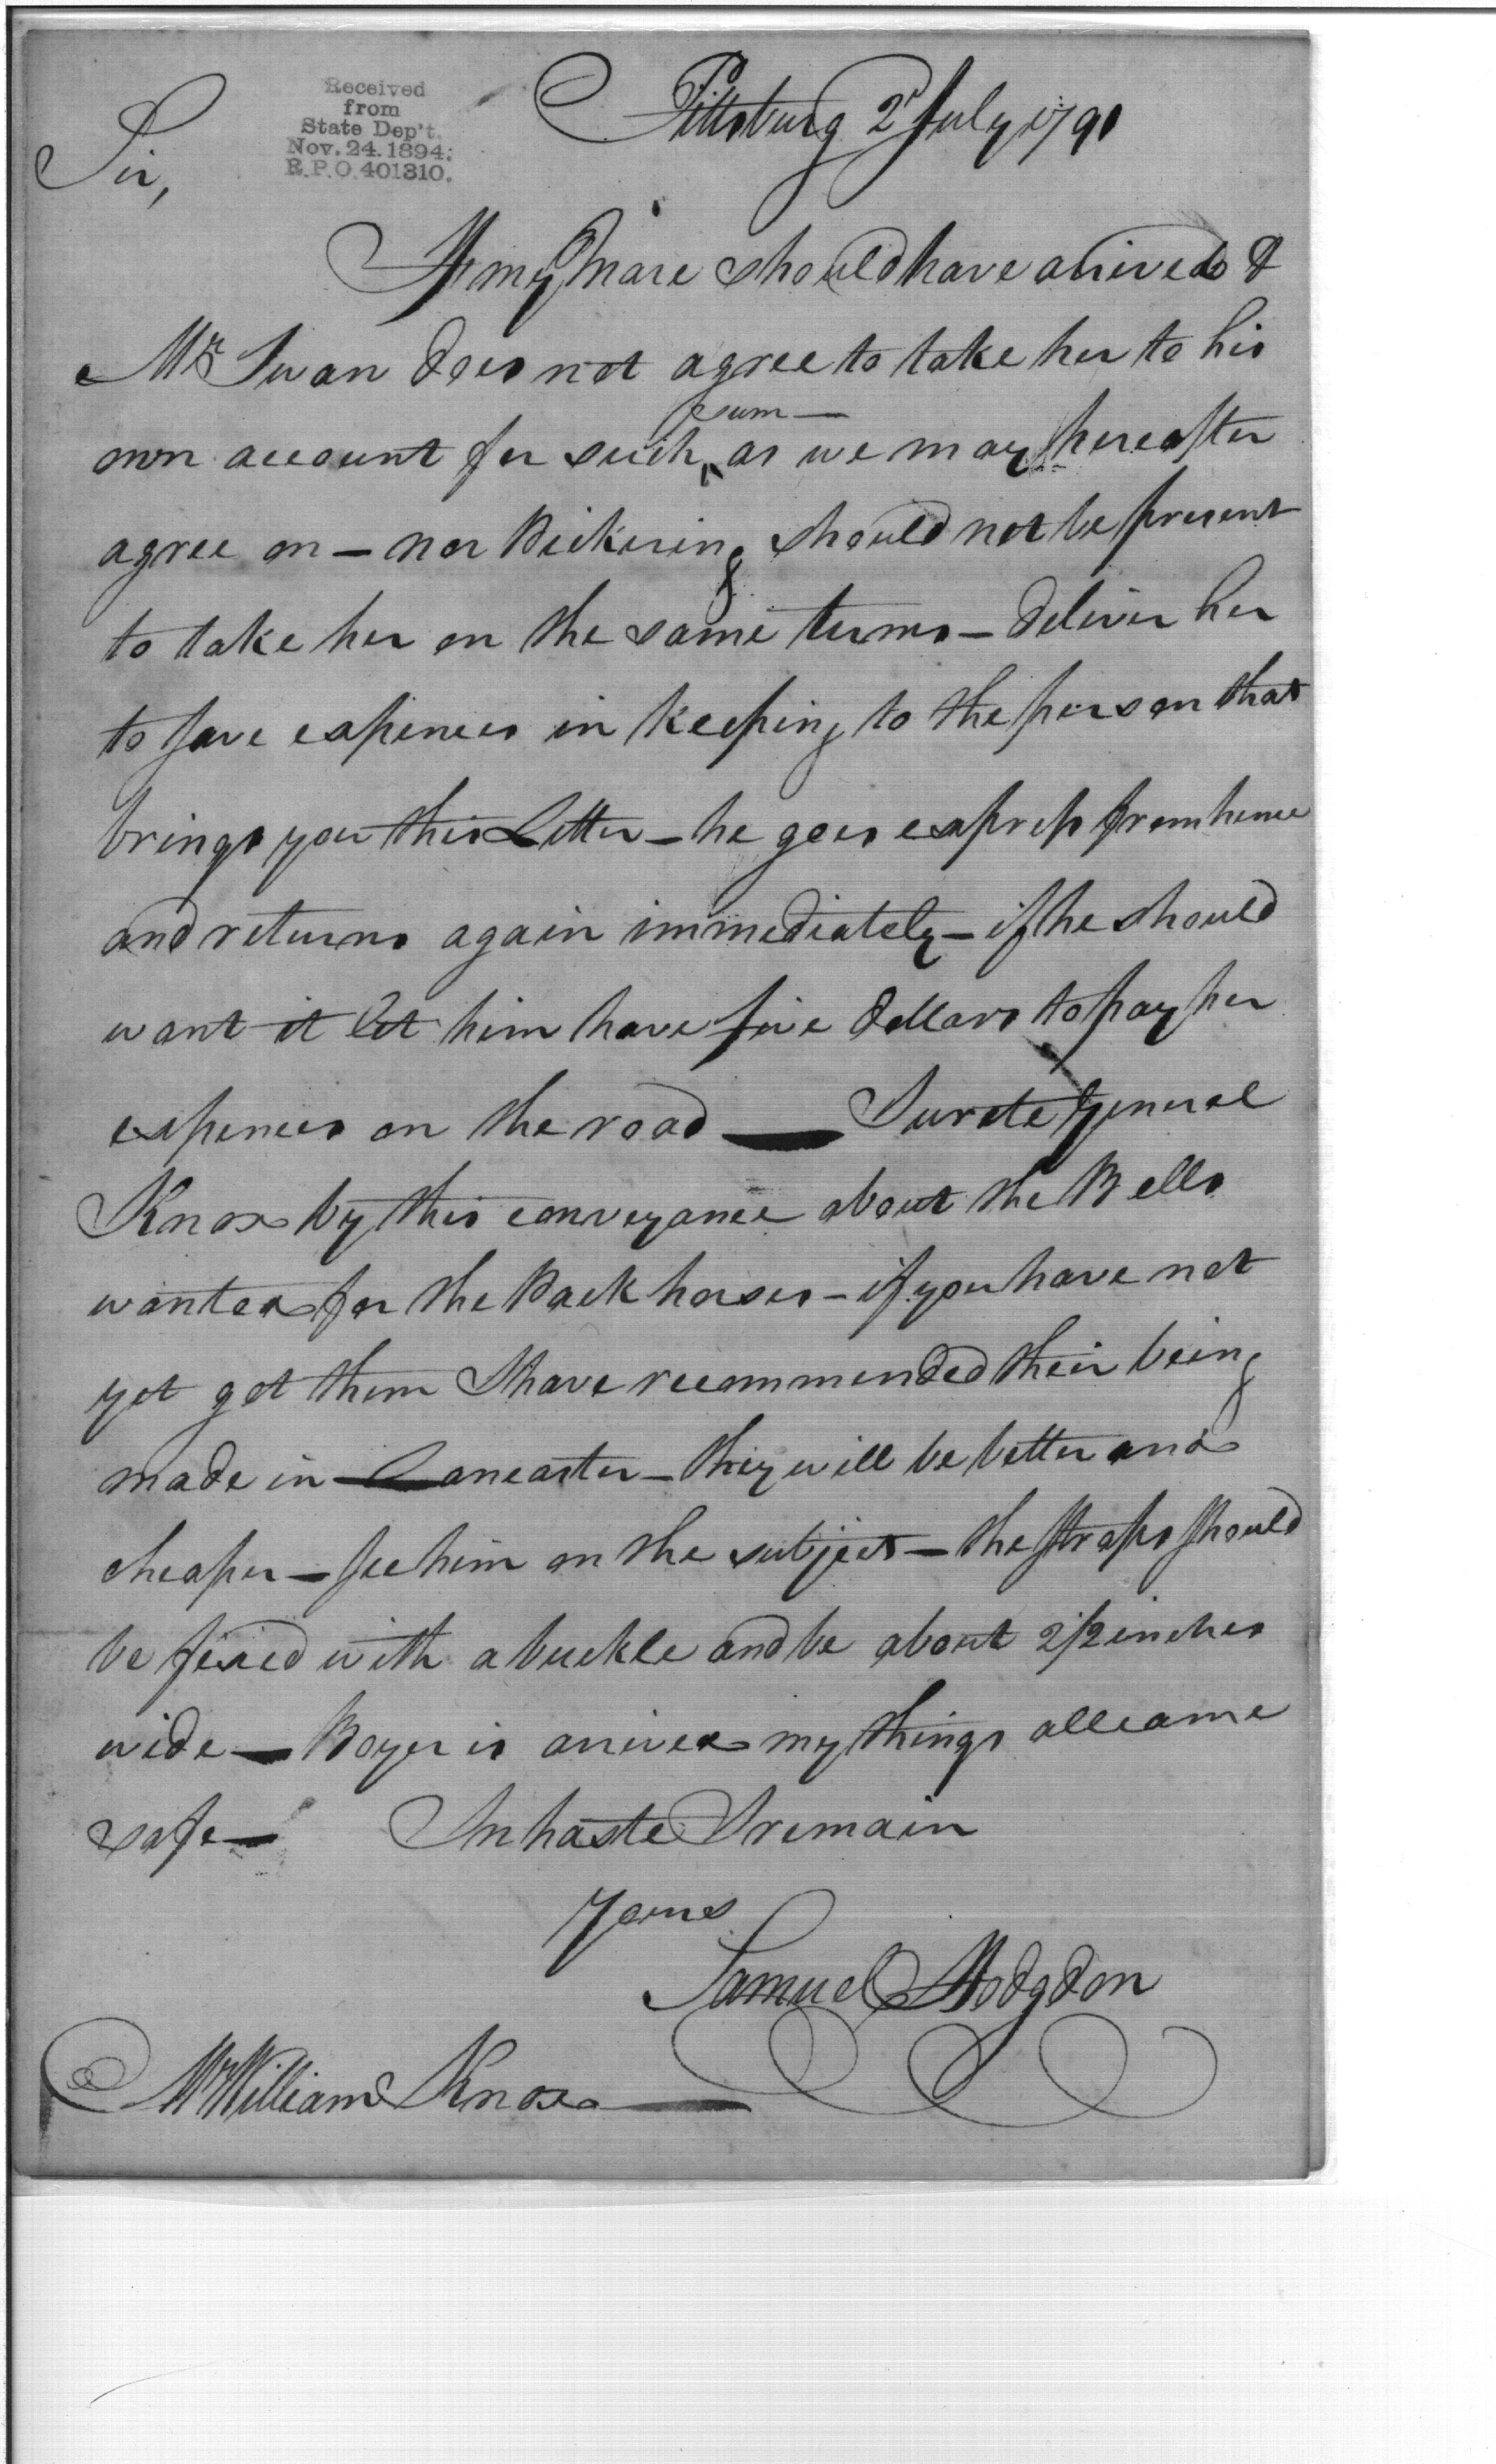 Pittsburg 2d July 1791
Received
from
State Dep't.
Nov. 24. 1894:
R.P.O. 401310.
Sir,
If my Mare should have arrived &
Mr Swan does not agree to take her to his
own account for such sum as we may hereafter
agree on — nor Pickering should not be present
to take her on the same terms — deliver her
to save expences in keeping to the person that
brings you this Letter — he goes express from hence
and returns again immediately — if he should
want it let him have five dollars to pay her
expences on the road — I wrote General
Knox by this conveyance about the Bells
wanted for the Pack horses — if you have not
yet got them I have recommended their being
made in Lancaster — they will be better and
cheaper — see him on the subject — the straps should
be fixed with a buckle and be about 2 1/2 inches
wide — Boyer is arived my things all came
safe — In haste I remain
Yours
Samuel Hodgdon
Mr William Knox